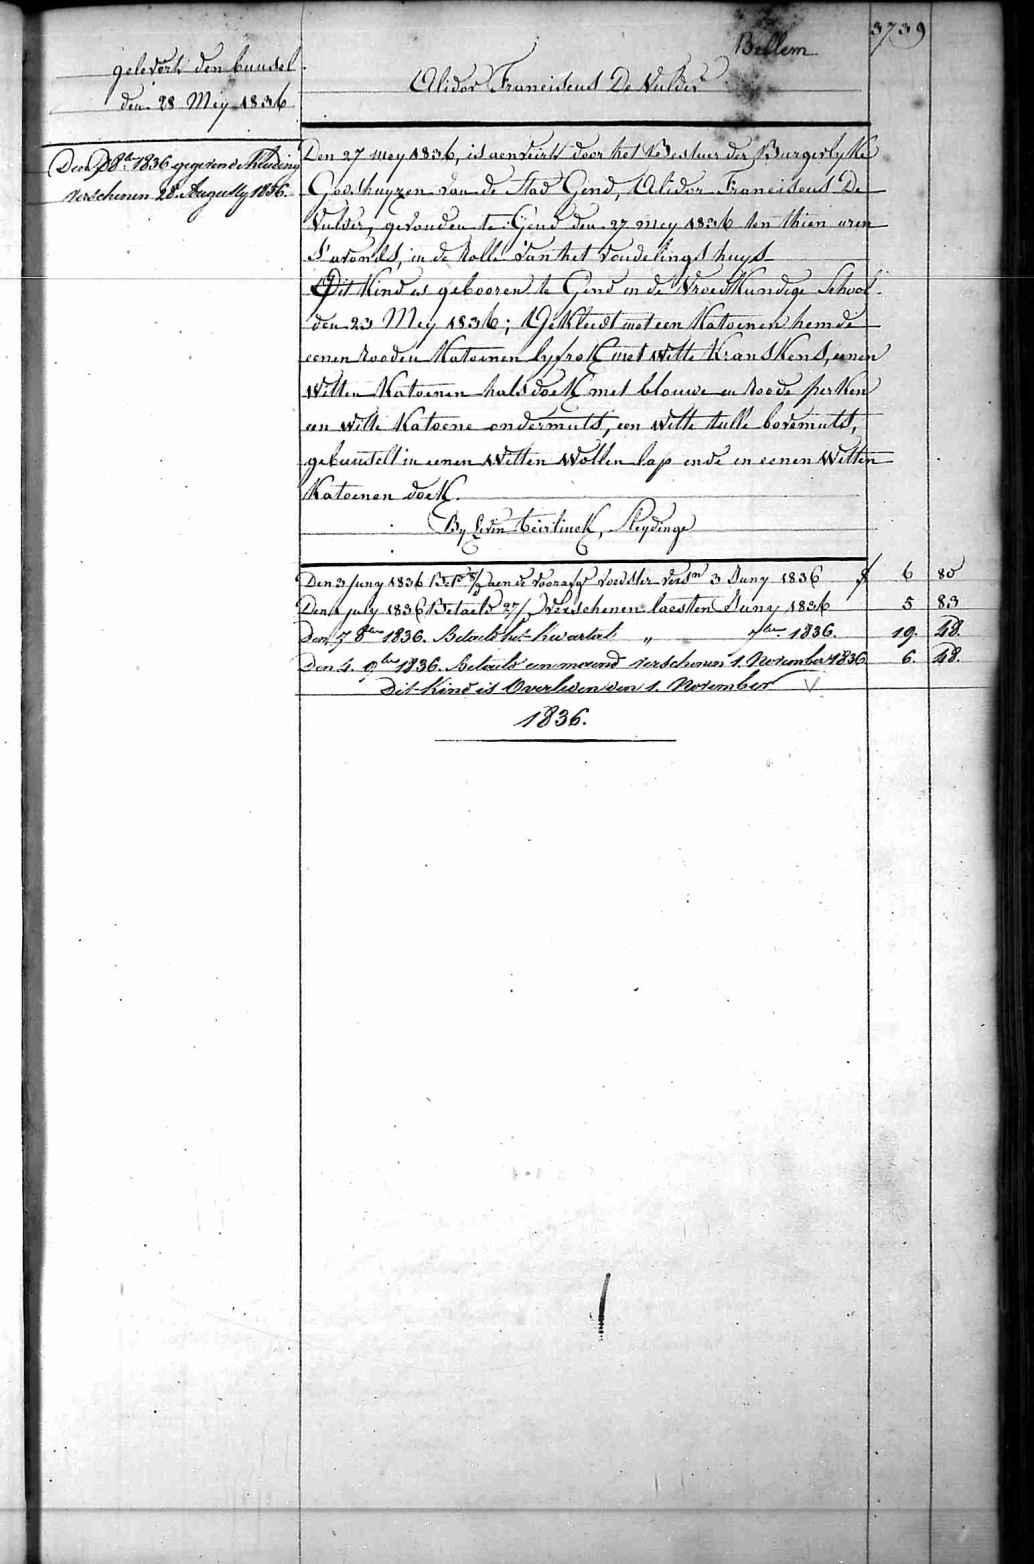 3739
Bellem
Alidor Franciscus De Vulder
gelevert den bundel
den 28 Mey 1836
Den 8br 1836 gegeven de Kleeding
verschenen 28 Augusty 1836.
Den 27 mey 1836, is aenveirt door het Bestuer der Burgerlyke
Godshuyzen van de Stad Gend, Alidor Franciscus De
Vulder, gevonden te Gend den 27 mey 1836 ten thien uren
S'avonds, in de Rolle van het vondelings huys
Dit Kind is gebooren te Gend in de Vroedkundige School
den 23 Mey 1836; Gekleedt met een Katoenen hemde
eenen rooden Katoenen lyfrok met witte Kranskens, eenen
witten Katoenen halsdoek met blouwe en roode perken
een witte Katoene ondermuts, een witte tulle bovemuts,
gebunselt in eenen witten wollen lap ende in eenen witten
Katoenen doek.
By Levin Teirlinck, Sleydinge
Den 3 Juny 1836 aen de voorafge voedster versn 3 Juny 1836 f 6 80
Den july 1836 Betaeld 27/ verschenen laesten Juny 1836 5 83
Den 7 8ber 1836. Betaeld het kwartael " 7ber 1836. 19. 48.
Den 4. 9ber 1836. Betaeld een maend verschenen 1. November 1836 6. 48.
Dit Kind is Overleden den 1. November
1836.